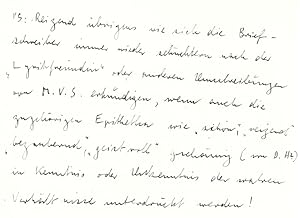 PS: Reizend übrigens wie sich die Brief-
schreiber immer wieder schüchtern nach der
"Lyrikfreundin" oder anderen
von M.V.S. erkundigen, wenn auch die
zugehörigen Epithetten wie "schön", "reizend"
"bezaubernd", "geistvoll" (von D. Hz)
in Kenntnis oder Unkenntnis der wahren
unterdrückt werden!